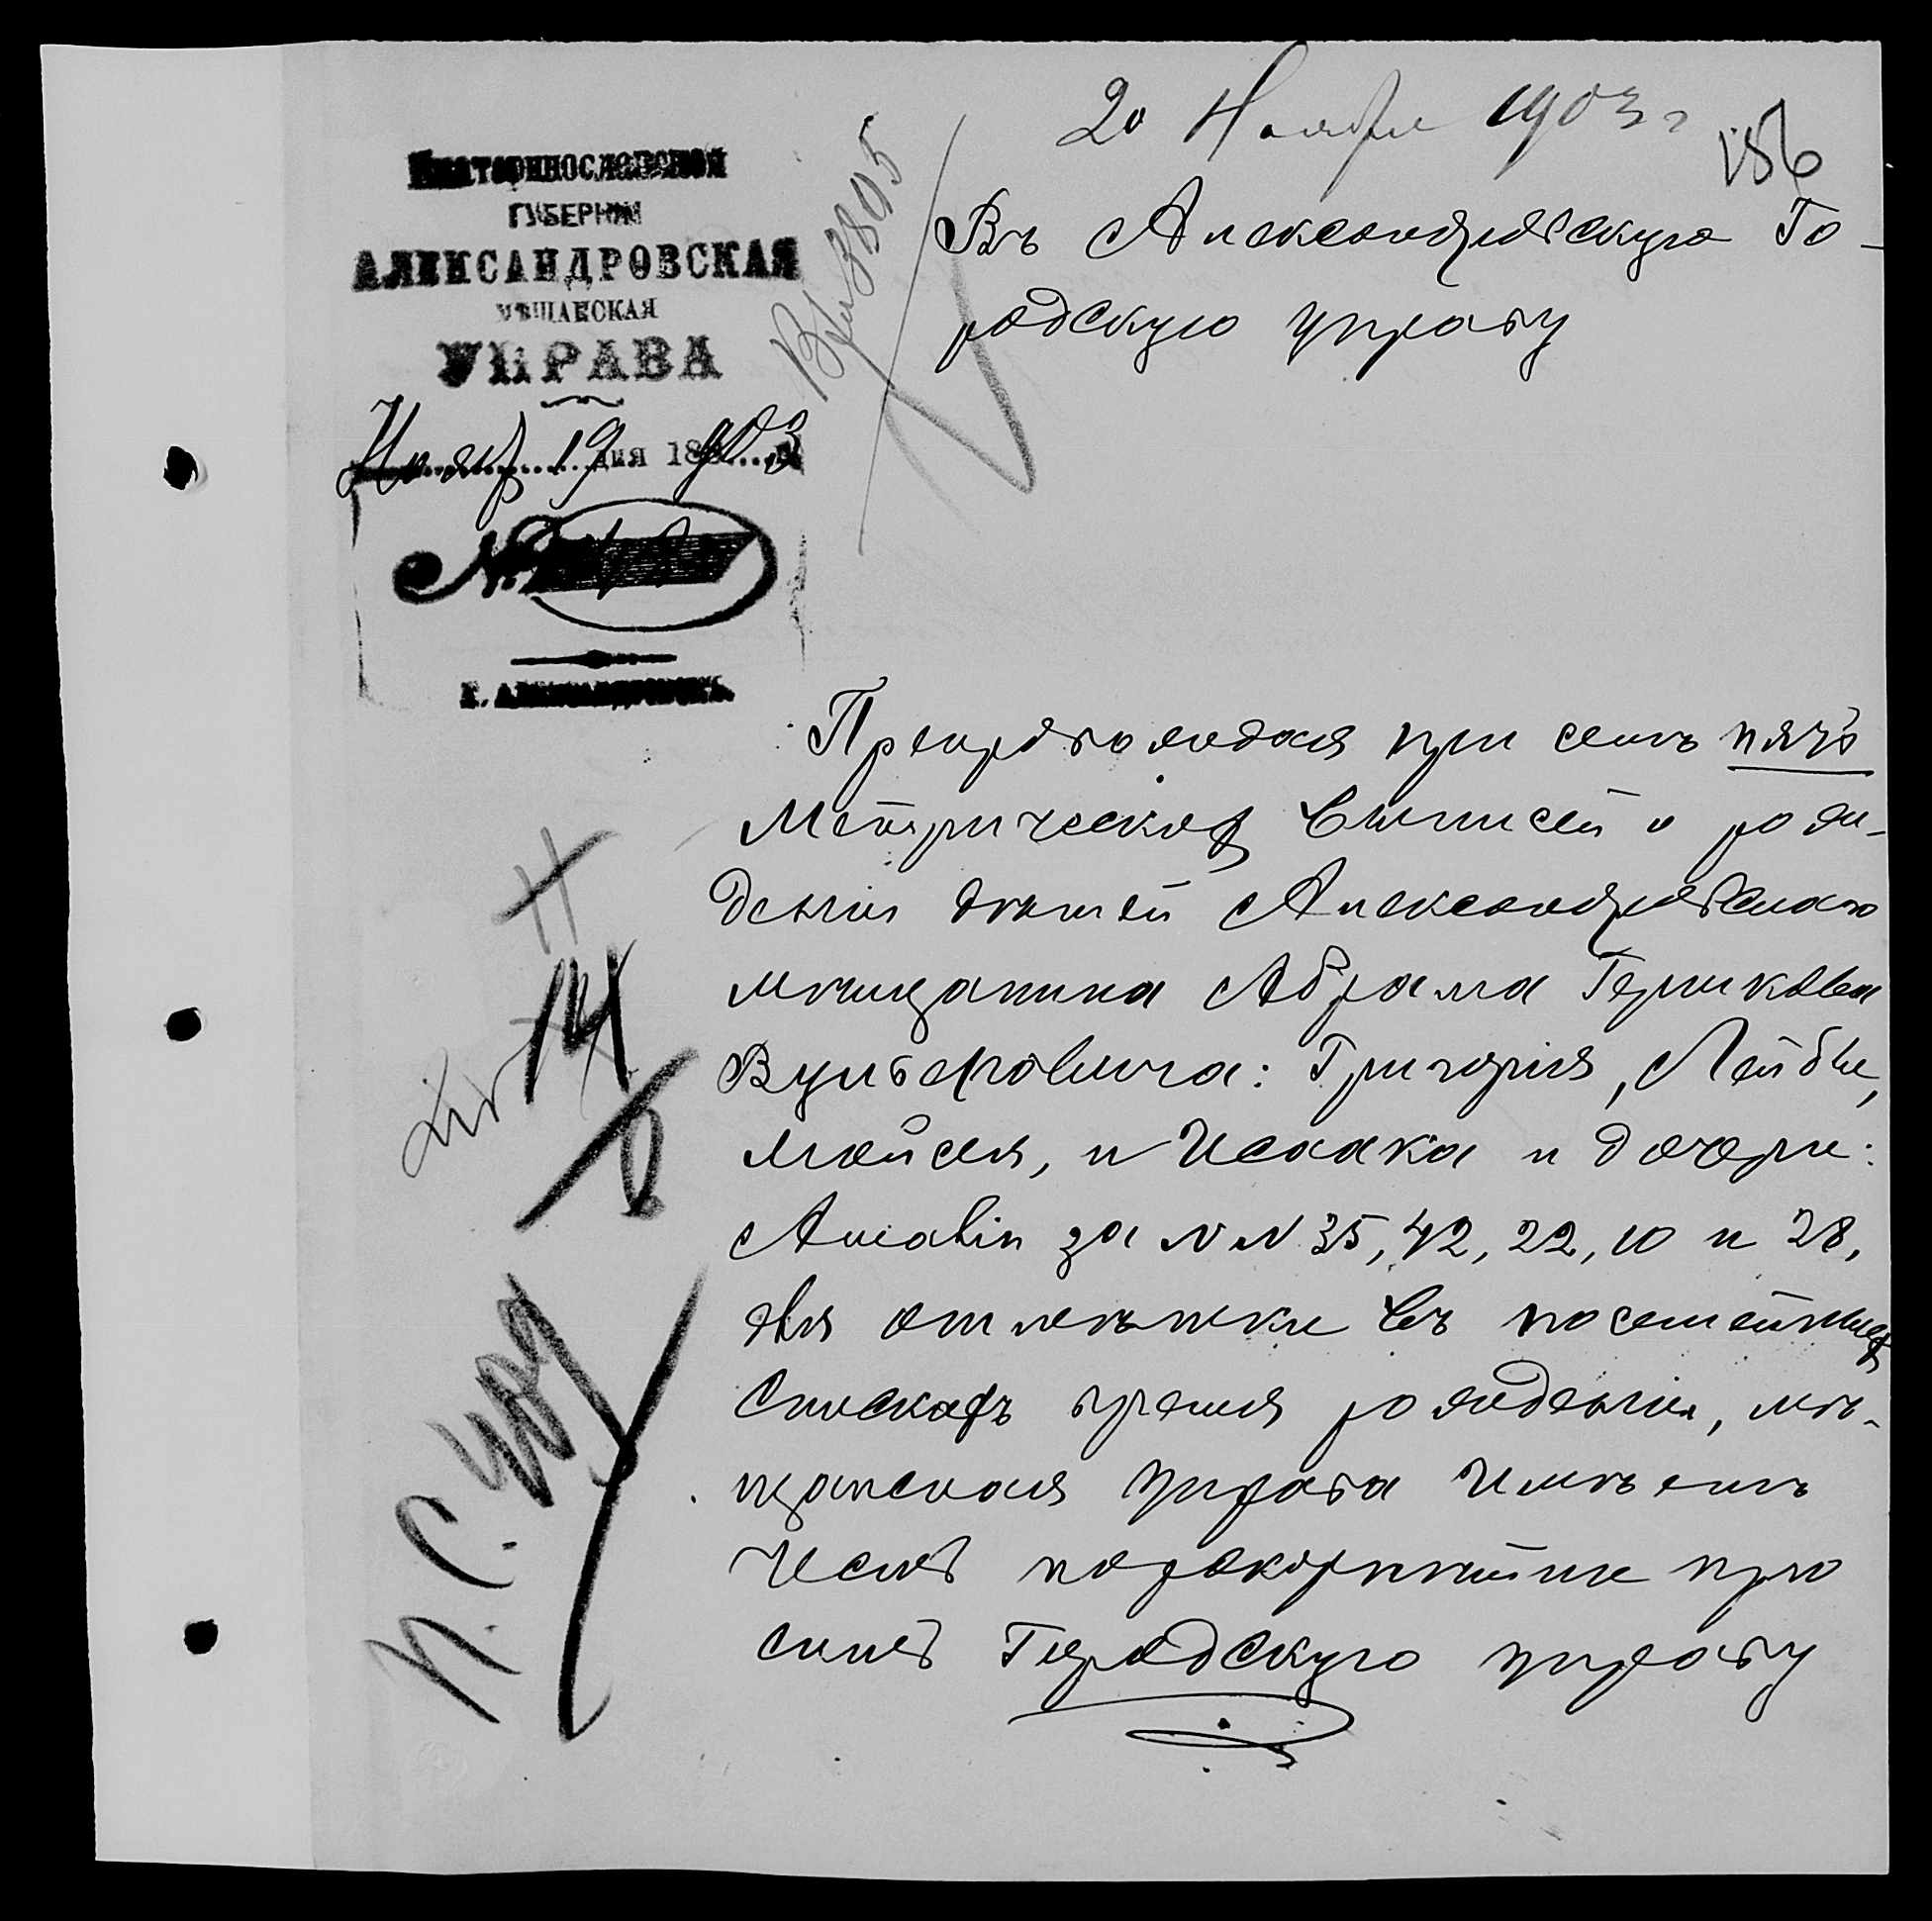 20 Ноября 1903 г
156
Екатеринославской
ГУБЕРНІИ
АЛЕКСАНДРОВСКАЯ
МѢЩАНСКАЯ
УПРАВА
Нояб. 19 дня 1903
№
Г. АЛЕКСАНДРОВСКЪ.
Вх 3805
Въ Александровскую Го-
родскую управу
Препровождая при семъ пять
Метрическихъ выписей о рож-
деніи дѣтей Александровскаго
мѣщанина Абрама Гершкова
Вульфовича: Григорія, Лейбы,
Мойсея, и Исаака и дочери:
за №№ 35, 42, 22, 10 и 28,
для отмѣтки въ посемейныхъ
спискахъ время рожденія, мѣ-
щанская управа имѣетъ
честь покорнѣйше про
ситъ Городскую управу